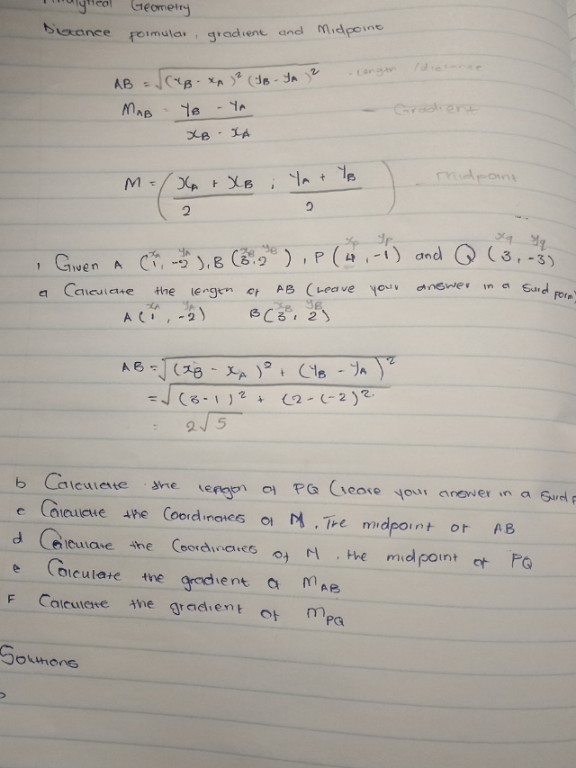 Analytical Geometry
Distance formular, gradient and Midpoint
AB = √(xB - xA)² (yB - yA)² - Lenger / distance
MAB - yB - yA / xB - xA - Gradient
M = ( xA + xB / 2 ; yA + yB / 2 ) - Midpoint
xA yA xB yB xP yP xq yq
1 Given A (1, -2), B (3, 2), P (4, -1) and Q (3, -3)
a Calculate the length of AB (Leave your answer in a surd form
xA yA xB yB
A (1, -2) B (3, 2)
AB = √(xB - xA)² + (yB - yA)²
= √(3-1)² + (2-(-2)²
: 2√5
b Calculate the length of PQ (leave your answer in a surd f
c Calculate the Coordinates of M. The midpoint of AB
d Calculate the Coordinates of N. the midpoint of PQ
e Calculate the gradient a MAB
F Calculate the gradient of MPQ
Solutions